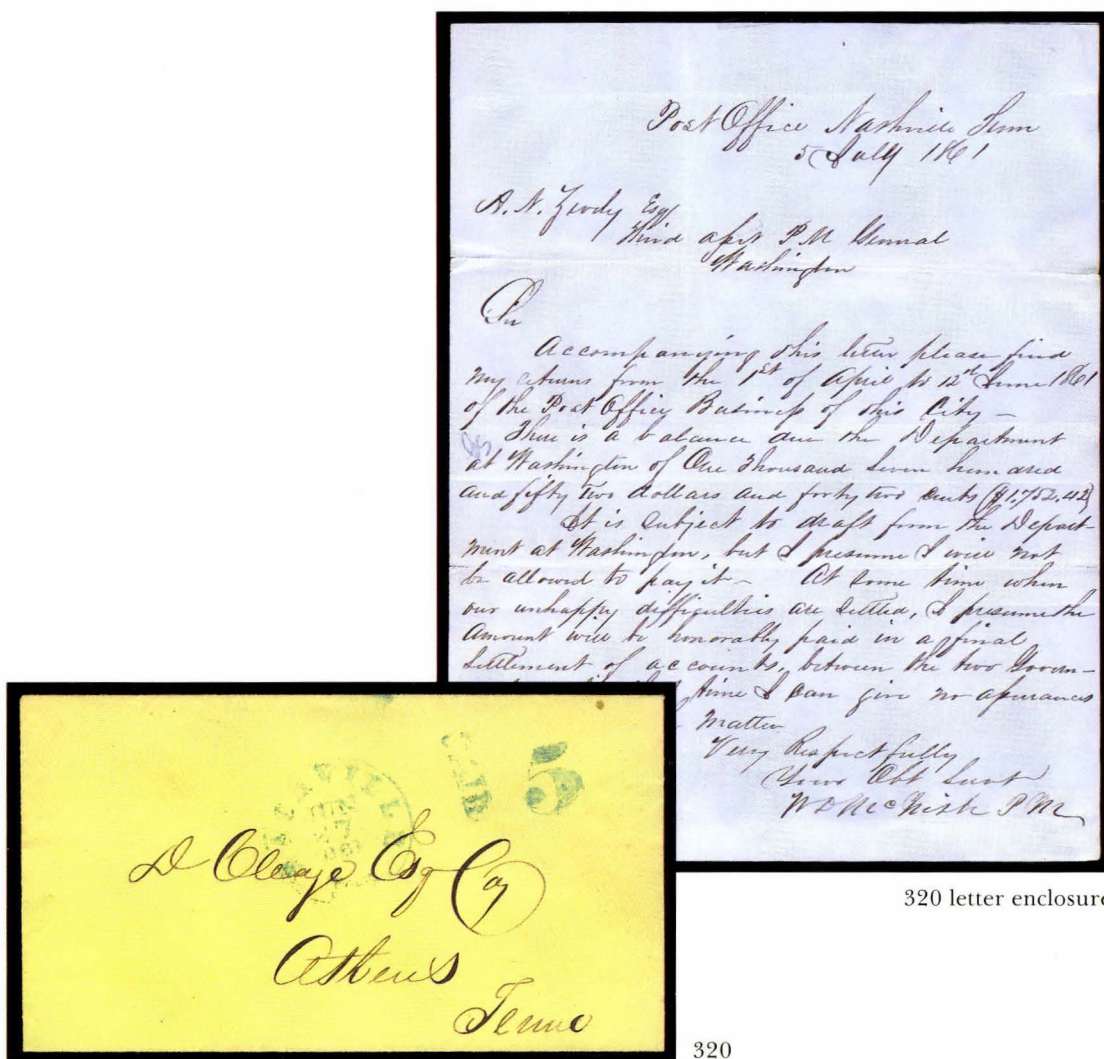 Post Office Nashville Tenn
5 July 1861
A. N. Zevely Esqr
Third asst P M General
Washington
Sir
Accompanying this letter please find
my returns from the 1st of April to 12th June 1861
of the Post Office Business of this City –
There is a balance due the Department
at Washington of One Thousand Seven hundred
and fifty Two dollars and forty two cents ($1,752.42)
It is subject to draft from the Depart-
ment at Washington, but I presume I will not
be allowed to pay it – At some time when
our unhappy difficulties are settled, I presume the
amount will be honorably paid in a final
settlement of accounts, between the two Govern-
time I can give no assurances
matter
Very Respectfully
Your Obt Servt
W D McNish P M
320 letter enclosure
PAID 5
NASHVILLE
JUN
27
D Cleage Esq Coy
Athens
Tenne
320